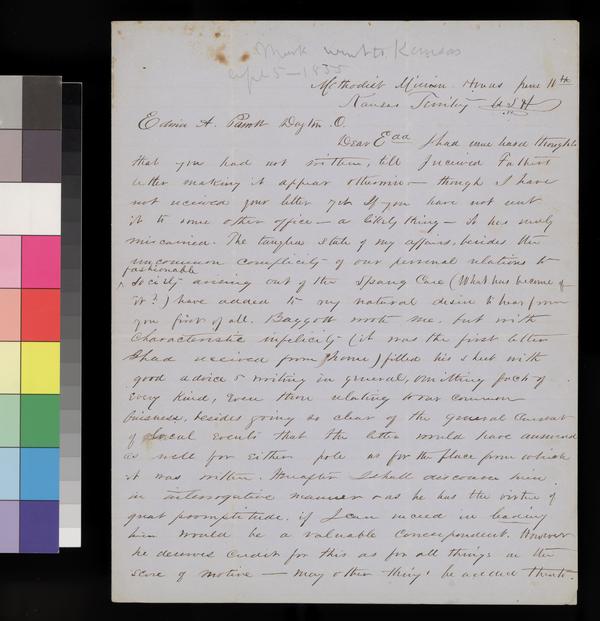 Mark went to Kansas
Sept 5 - 1855
Methodist Mission June 11th
Kansas Territory U.S.A.
Edwin A. Parrott Dayton. O.
Dear Edd I had some hard thoughts
that you had not written, till I received Father's
letter making it appear otherwise - though I have
not received your letter yet. If you have not sent
it to some other office - a likely thing - it has surely
miscarried. The tangled state of my affairs, besides the
uncommon complicity of our personal relations to
fashionable
society arising out of the Sprang Case (What has become of
it?) have added to my natural desire to hear from
you first of all. Baggott wrote me, but with
characteristic simplicity (it was the first letter
I had received from home) filled his sheet with
good advice & writing in general, omitting facts of
every kind, even those relating to our common
business, besides going so clear of the general current
of local events that the letter would have answered
as well for either pole as for the place from which
it was written. Hereafter I shall discourse him
in interrogative manner & as he has the virtue of
great promptitude, if I can succeed in leading
him would be a valuable correspondent. However
he deserves credit for this as for all things on the
score of motive - may other things be added thereto.